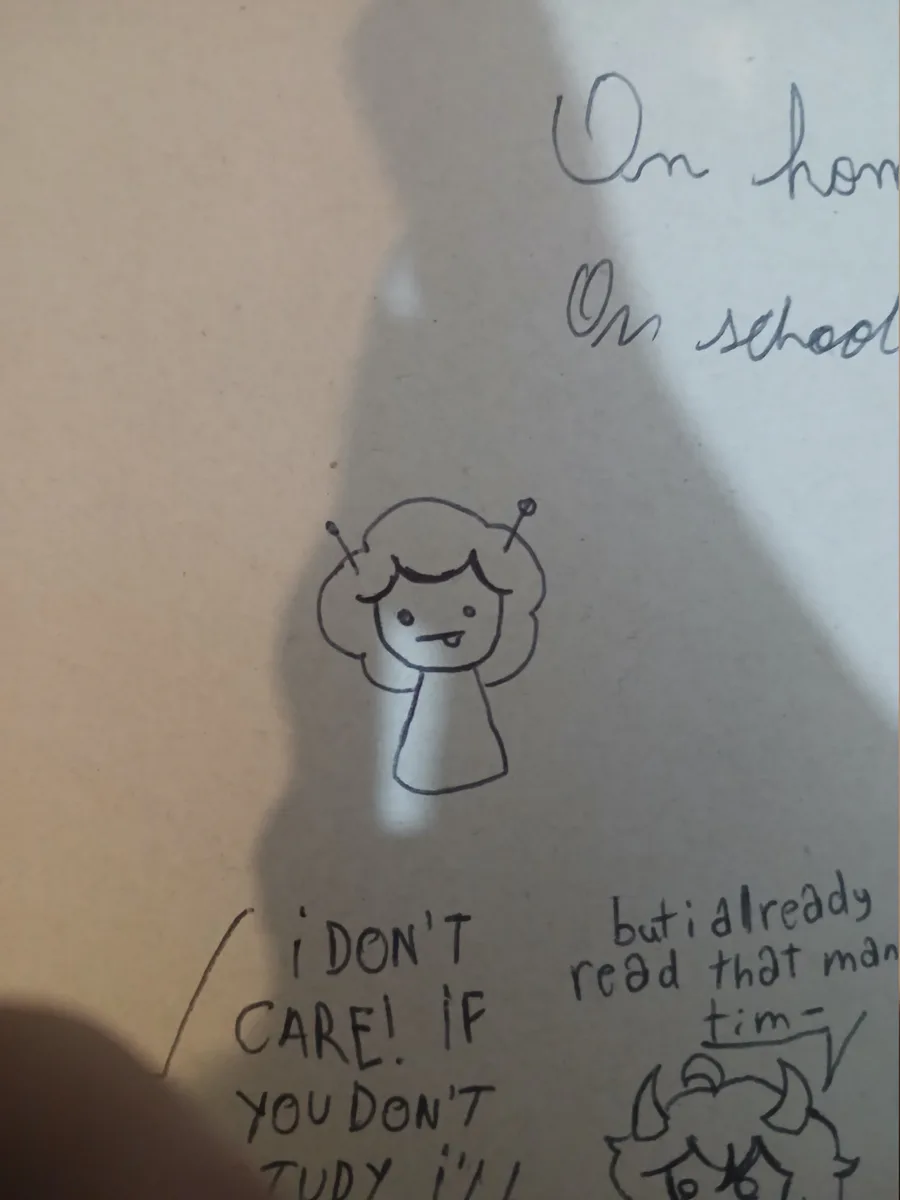 On hom
On school
i DON'T
CARE! iF
YOU DON'T
TUDY i'll
but i already
read that man
tim-